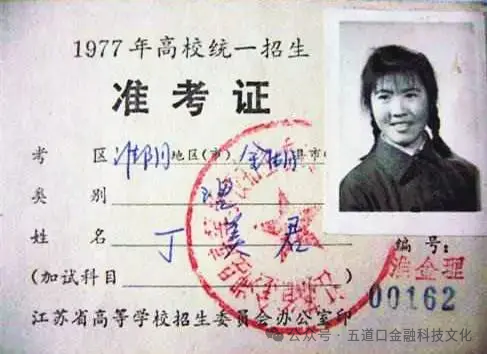 1977年高校统一招生
准考证
考区 淮阴地区(市) 金湖县市(
类别 理
姓名 丁美君
编号:
(加试科目
淮金理
00162
江苏省高等学校招生委员会办公室印
公众号·五道口金融科技文化